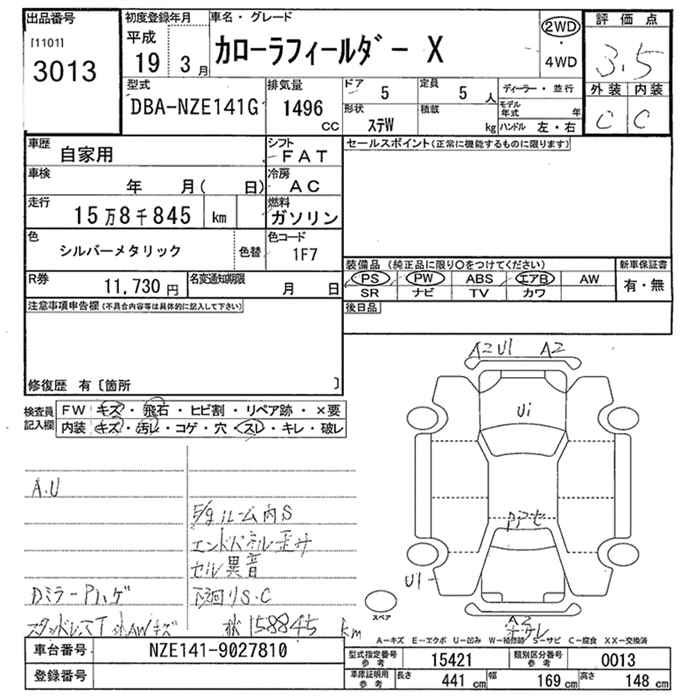 出品番号
[1101]
3013
初度登録年月
平成
19 3月
車名・グレード
カローラフィールダー X
2WD
・
4WD
評価点
3.5
外装 内装
C C
型式
DBA-NZE141G
排気量
1496
cc
ドア 5
形状
ステW
定員 5 人
積載
kg
ディーラー・並行
モデル年式 年
ハンドル 左・右
車歴 自家用
シフト
FAT
車検 年 月( 日)
冷房
AC
走行 15万8千845 km
燃料
ガソリン
色 シルバーメタリック 色替
色コード
1F7
R券 11,730円
名変通知期限
月 日
セールスポイント(正常に機能するものに限ります)
装備品 (純正品に限り○をつけてください)
PS PW ABS エアB AW
SR ナビ TV カワ
新車保証書
有・無
後日品
注意事項申告欄(不具合内容等は具体的に記入して下さい)
修復歴 有〔箇所 〕
検査員
記入欄
FW キズ・飛石・ヒビ割・リペア跡・×要
内装 キズ・汚レ・コゲ・穴・スレ・キレ・破レ
A.U
5/9ルーム内S
エンドパネル歪ミ
セル異音
DミラーPハゲ
下廻リS.C
158845km
A2 U1 A2
Ui
U1
A2
スペア
A-キズ E-エクボ U-凹み W-補修跡 S-サビ C-腐食 XX-交換済
車台番号 NZE141-9027810
登録番号
型式指定番号
参考
15421
類別区分番号
参考
0013
車庫証明用
参考
長さ 441 cm
幅 169 cm
高さ 148 cm